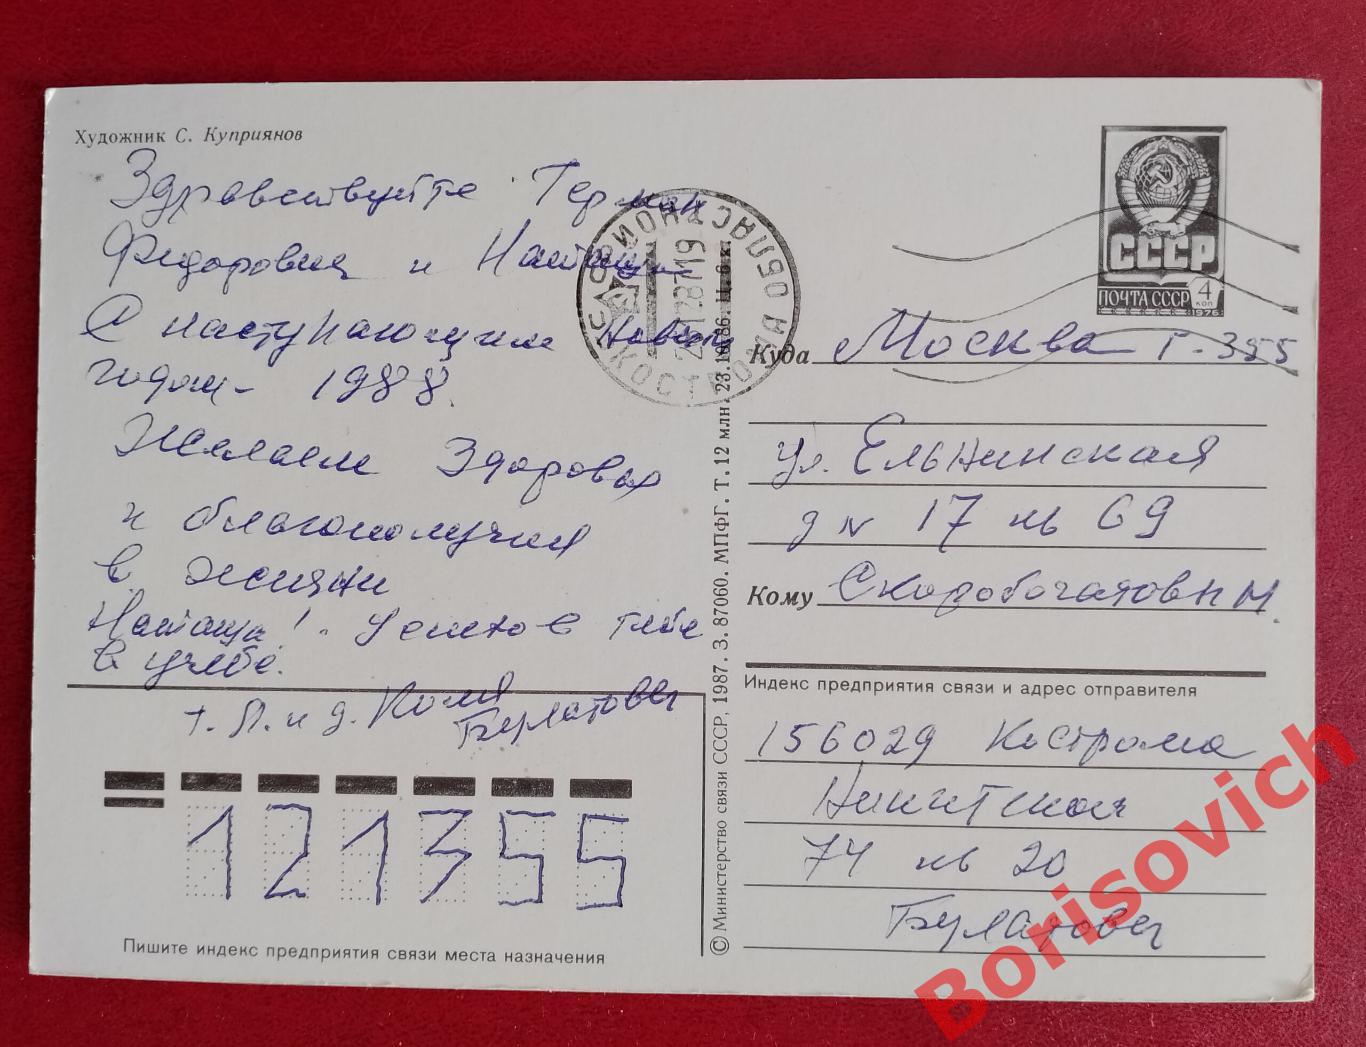 Художник С. Куприянов
Здравствуйте Герман
Федорович и Наташа
С наступающим Новым
годом - 1988.
Желаем Здоровья
и благополучия
в жизни
Наташа! Успехов тебе
в учебе.
т. Л. и д. Коля
Булатовы
СССР
ПОЧТА СССР 4
КОП
1976
КОСТРОМА
Куда Москва Г-355
ул. Ельнинская
д N 17 кв 69
Кому Скоробогатов Н М.
Индекс предприятия связи и адрес отправителя
156029 Кострома
Никитская
74 кв 20
Булатовы
121355
Пишите индекс предприятия связи места назначения
© Министерство связи СССР, 1987. З. 87060. МПФГ. Т. 12 млн. 23.10.86. Ц. 6 к.
Borisovich